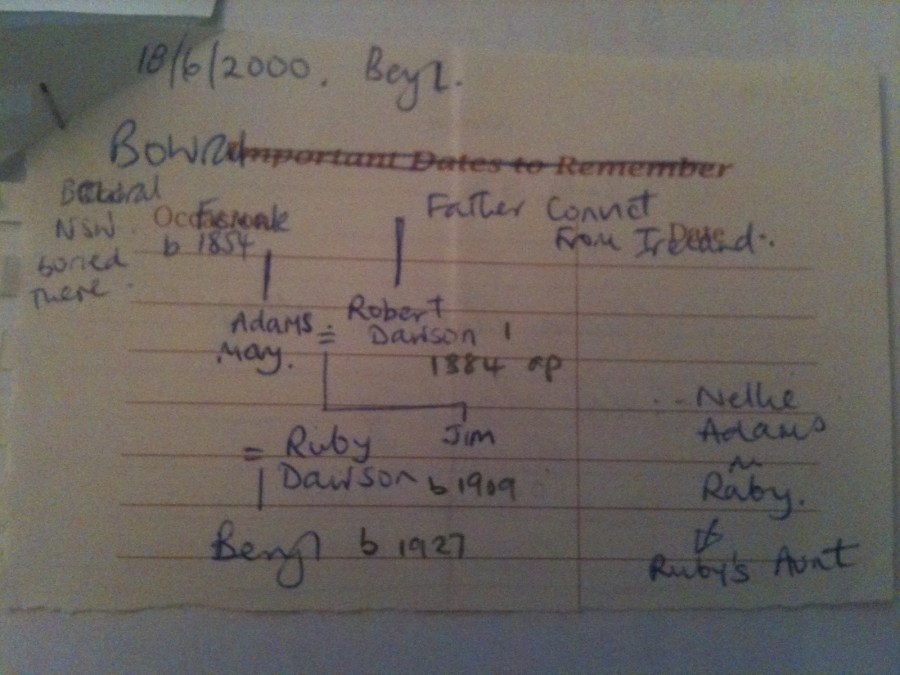 18/6/2000. Beryl.
Bowral
Important Dates to Remember
Bowral
NSW.
buried
there.
Occasion
b 1854
Father Convict
From Ireland.
Date
Adams =
May.
Robert
Dawson 1
1884 ap
= Ruby
Dawson b 1909
Jim
Beryl b 1927
Nellie
Adams
m
Raby.
Ruby's Aunt